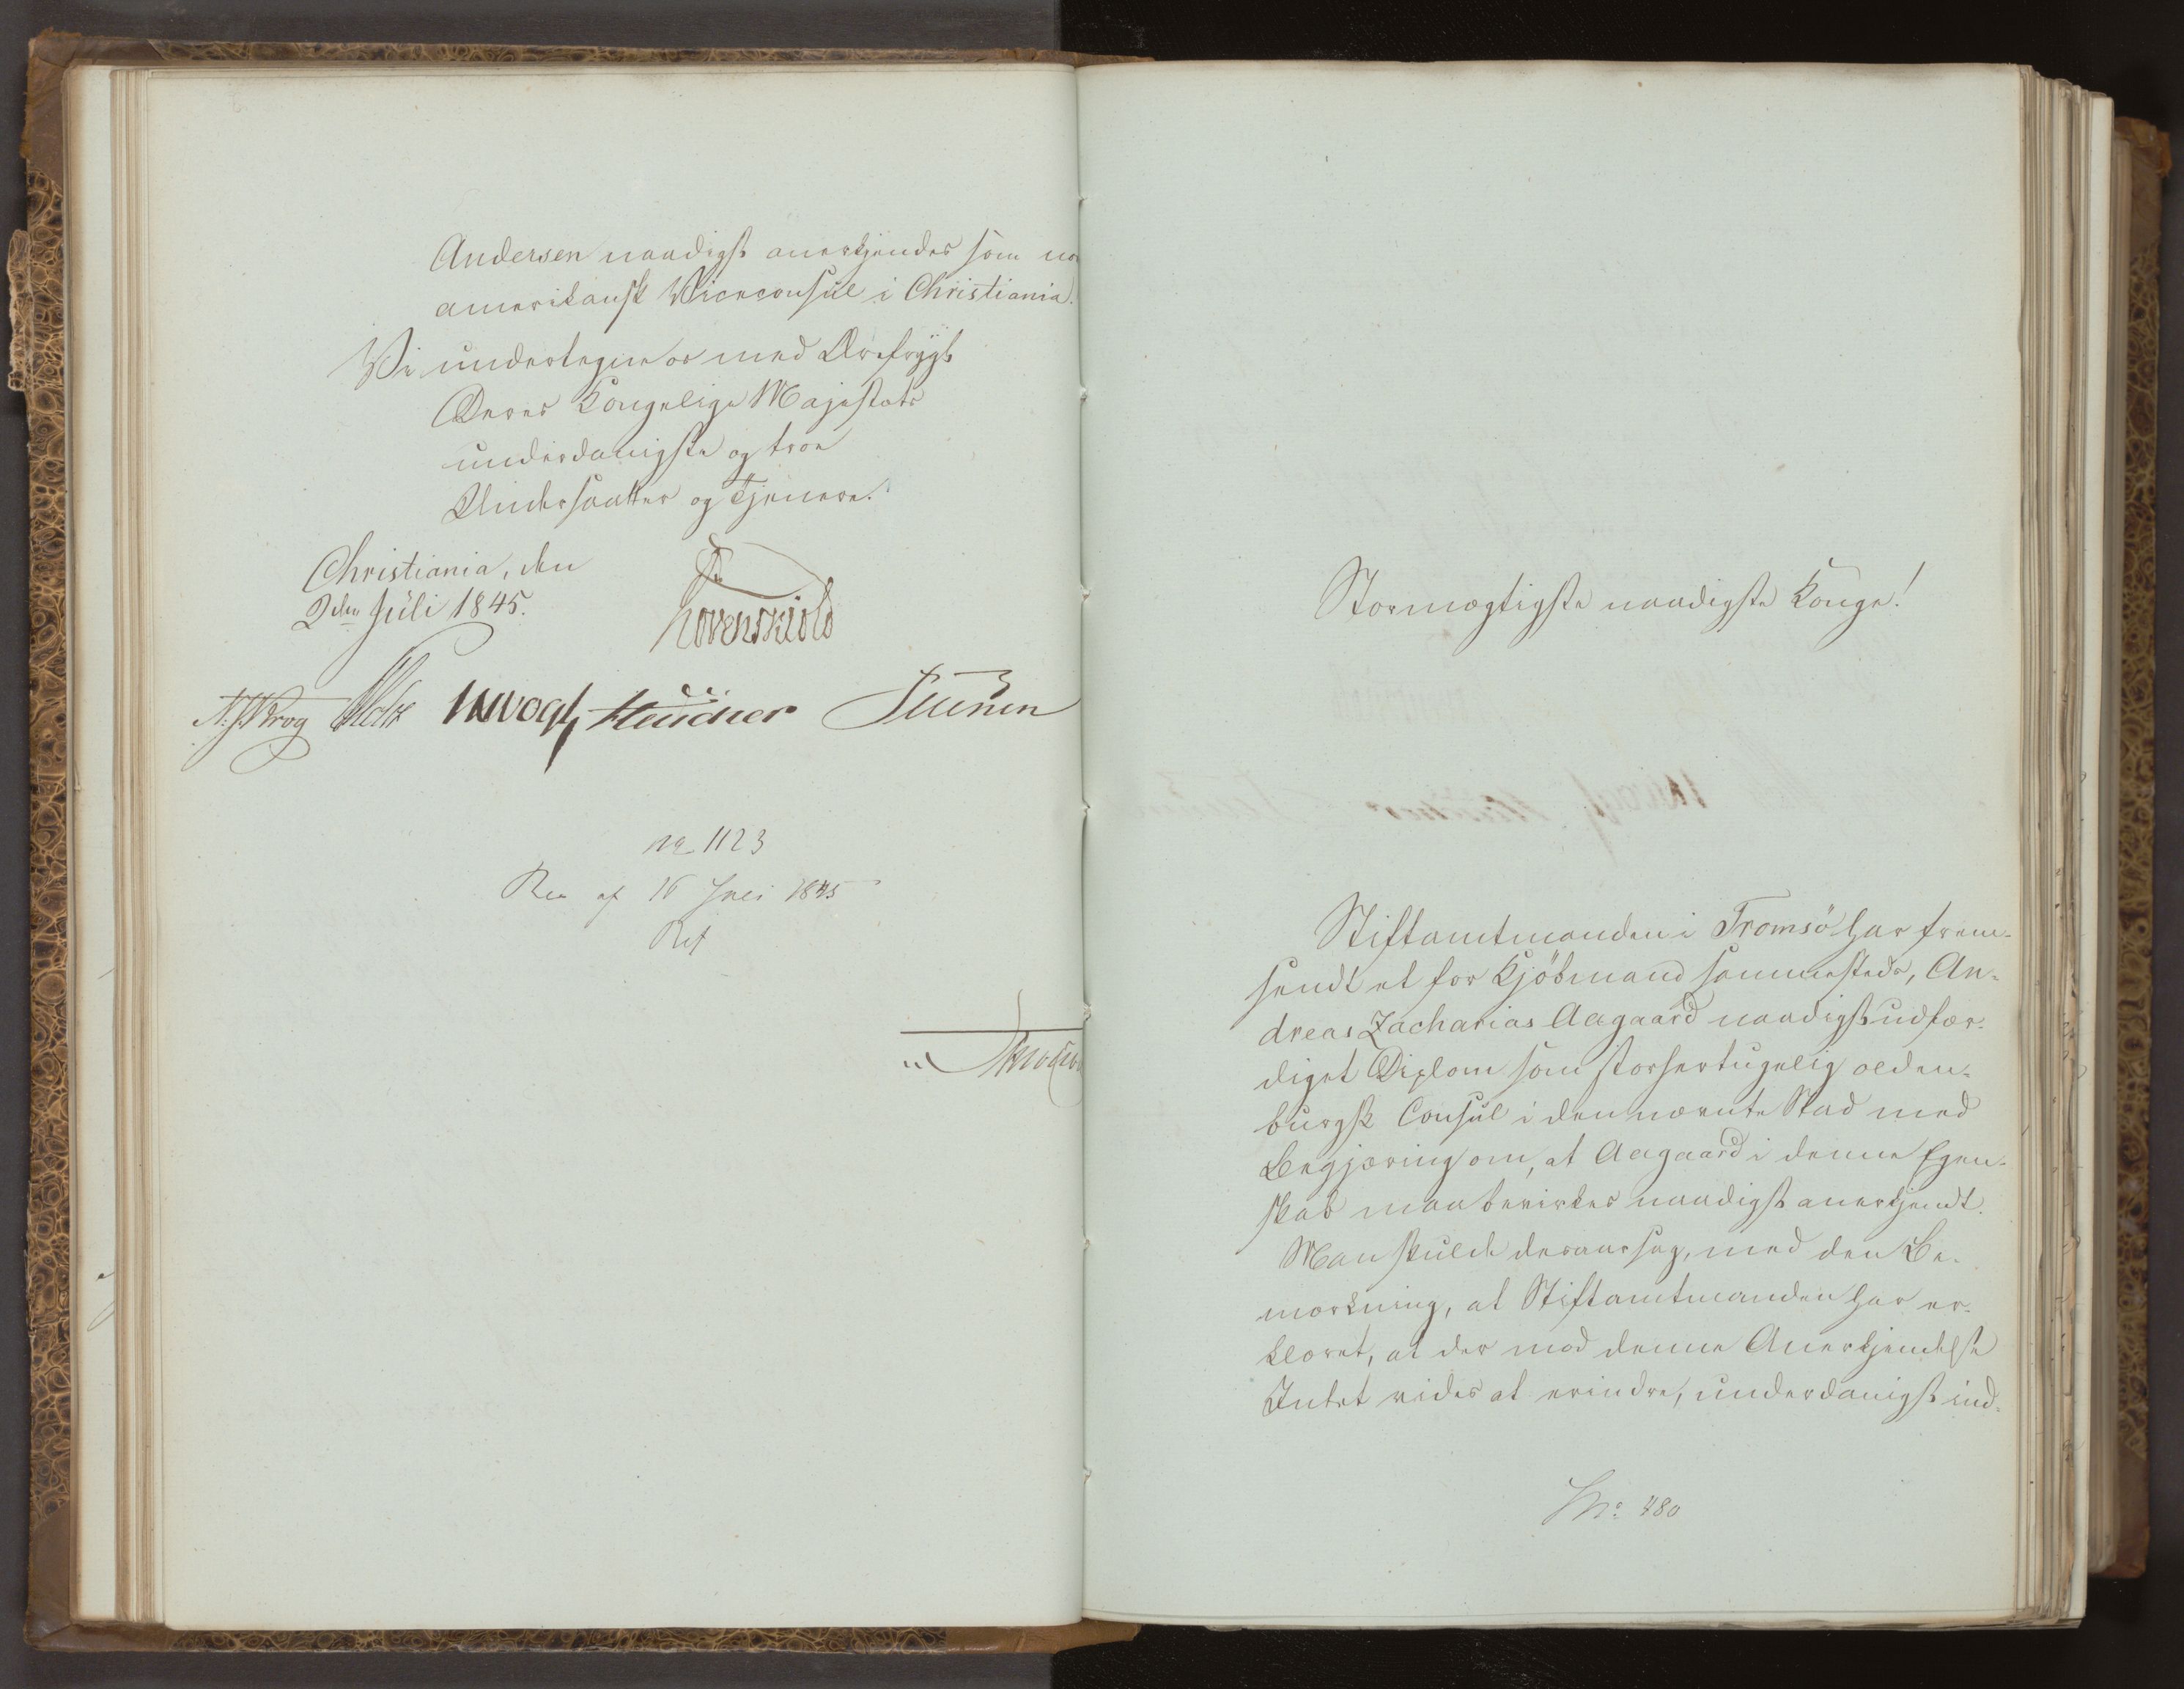 Andersen naadigst anerkjendes som no
amerikansk Viceconsul i Christiania.
Vi undertegne os med Ærefrygt
Deres Kongelige Majestæts
underdanigste og troe
Undersaatter og Tjenere.
Christiania, den
2den Juli 1845.
Løvenskiold
N. J. Krog Holst JHVogt Heidmer Sturen
No 1123
Res af 16 Juli 1845
Ref
Stormægtigste naadigste Konge!
Stiftamtmanden i Tromsö har frem-
sendt et for Kjöbmand sammesteds, An-
dreas Zacharias Aagaard naadigst udfær-
diget Diplom som storhertugelig olden-
burgsk Consul i den nævnte Stad med
Begjæring om, at Aagaard i denne Egen-
skab maa bevirkes naadigst anerkjendt.
Man skulde desaarsag, med den Be-
mærkning, at Stiftamtmanden har er-
klæret, at der mod denne Anerkjendelse
Intet vides at erindre, underdanigst ind-
No: 480